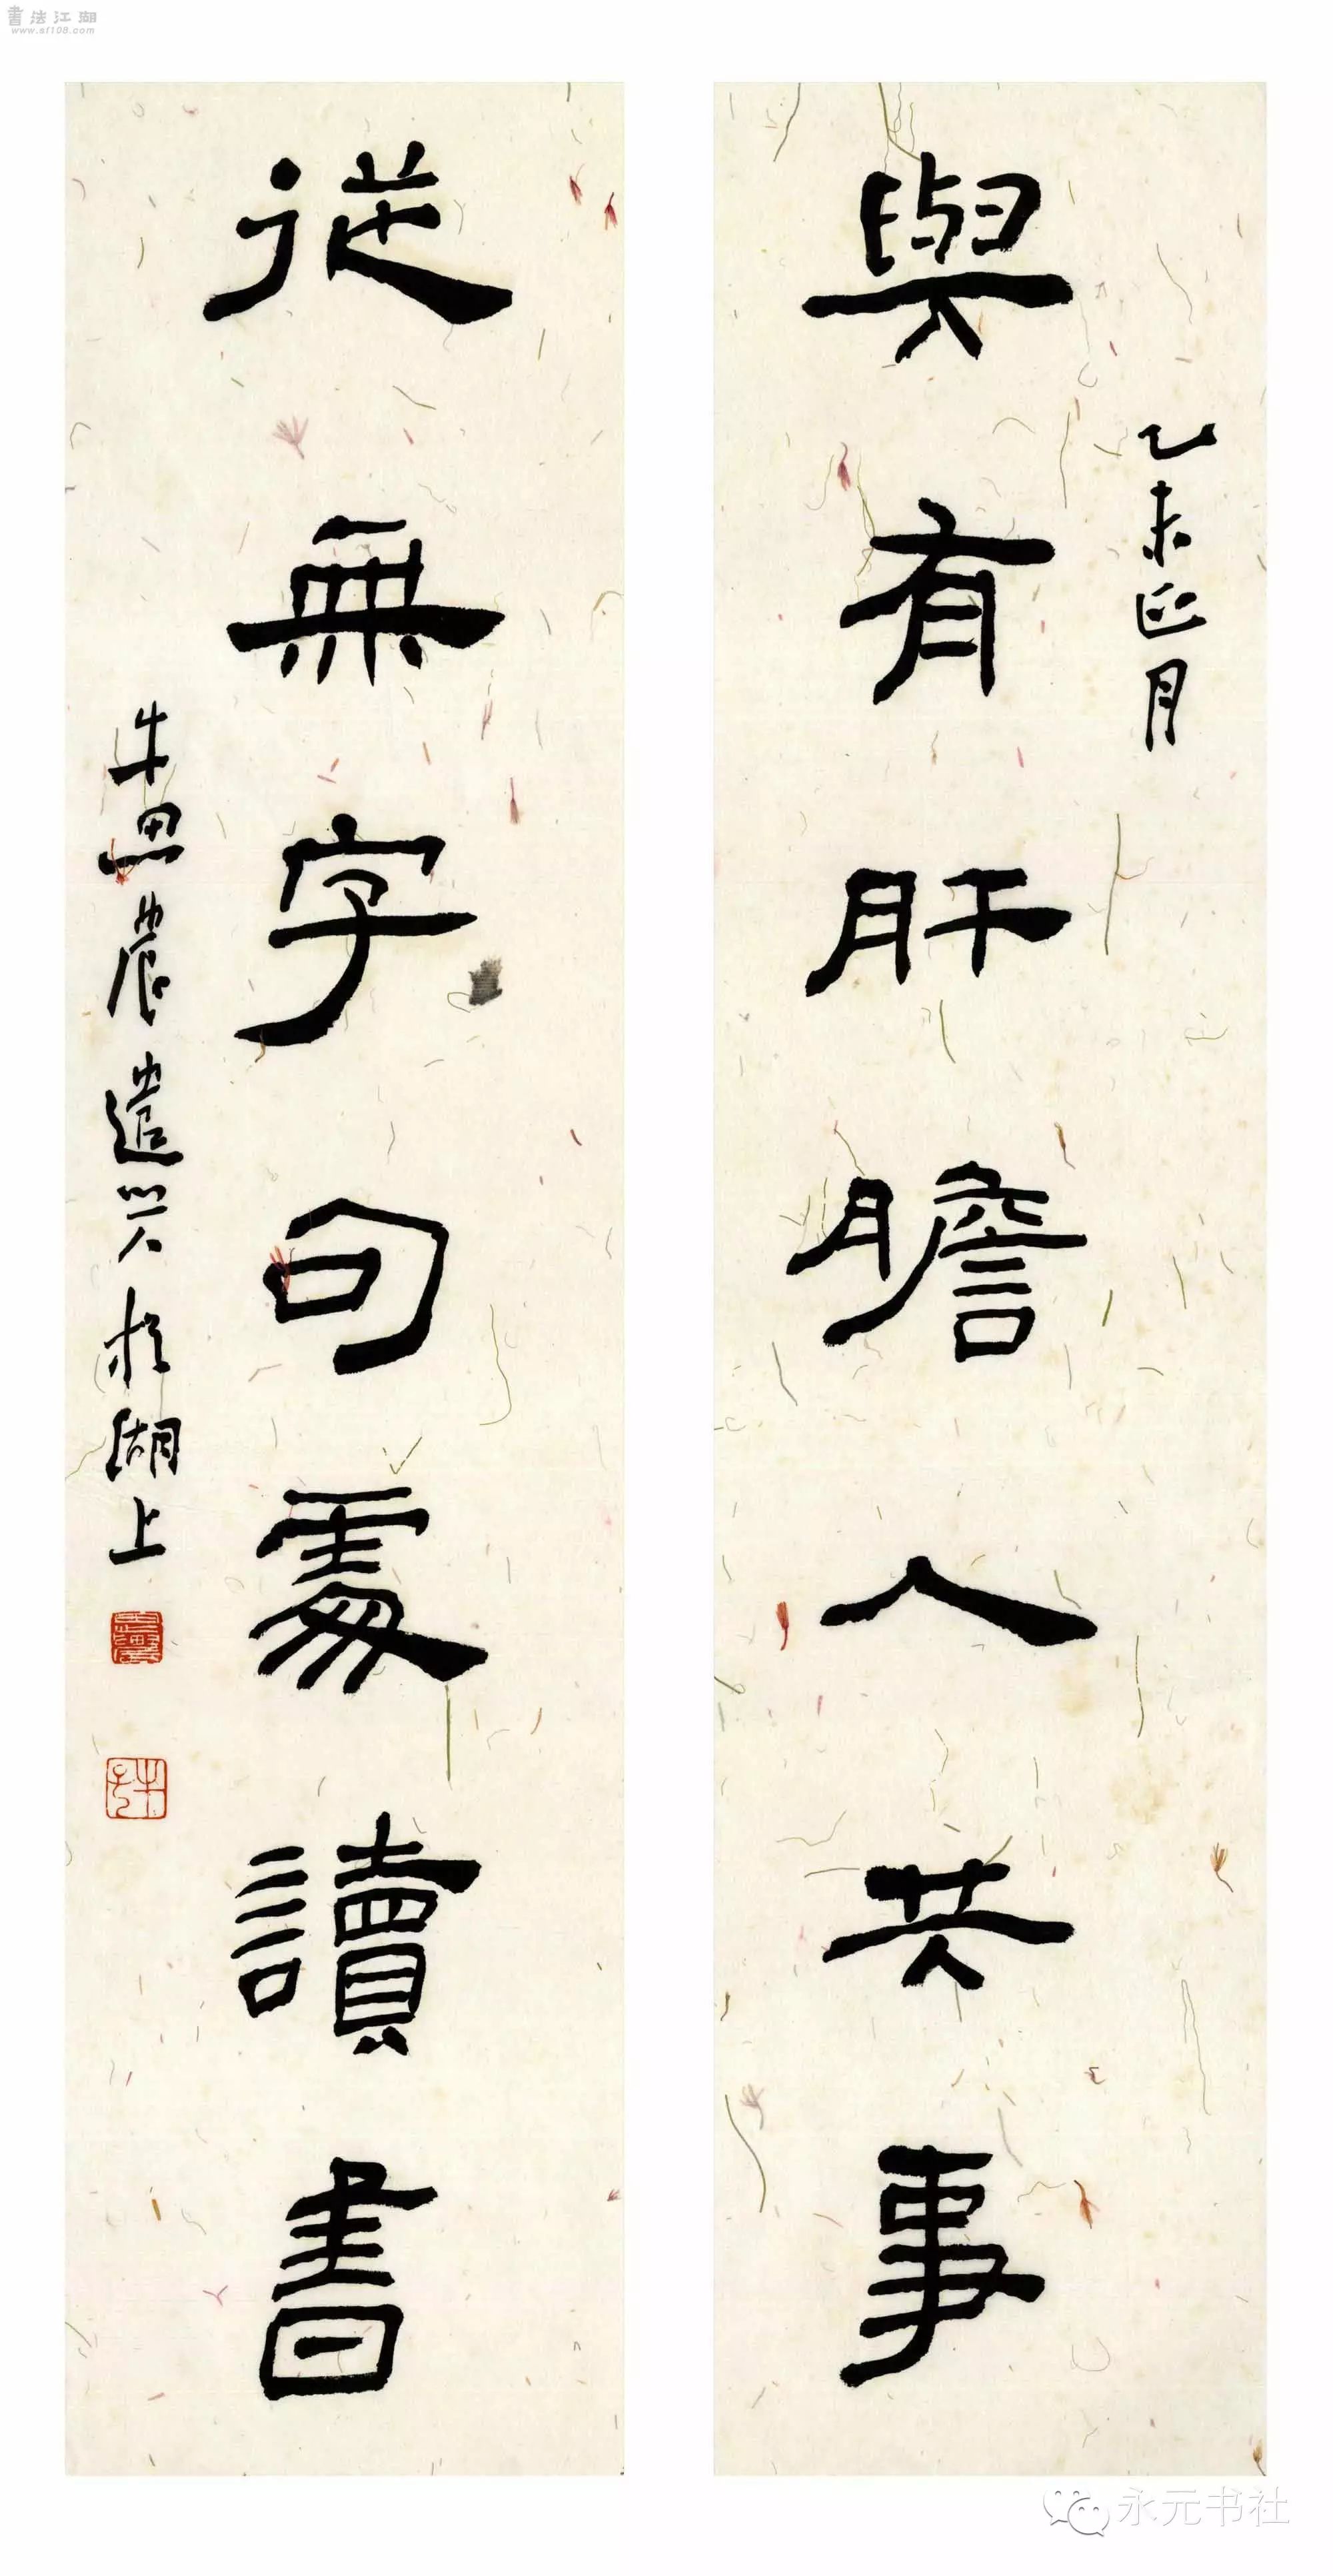 書法江湖
www.sf108.com
乙未正月
與有肝膽人共事
從無字句處讀書
朱思農遣興於湖上
永元书社